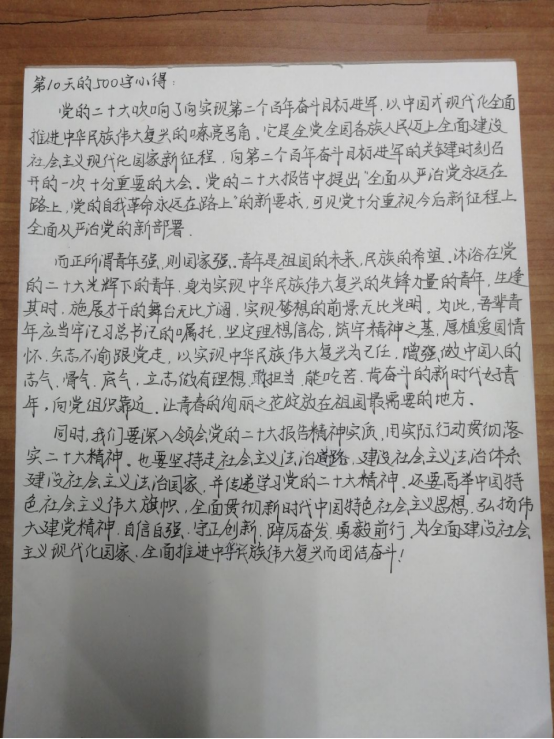 第10天的500字心得：
党的二十大吹响了向实现第二个百年奋斗目标进军，以中国式现代化全面
推进中华民族伟大复兴的嘹亮号角。它是全党全国各族人民迈上全面建设
社会主义现代化国家新征程，向第二个百年奋斗目标进军的关键时刻召
开的一次十分重要的大会。党的二十大报告中提出“全面从严治党永远在
路上，党的自我革命永远在路上”的新要求，可见党十分重视今后新征程上
全面从严治党的新部署。
而正所谓青年强，则国家强。青年是祖国的未来，民族的希望。沐浴在党
的二十大光辉下的青年，身为实现中华民族伟大复兴的先锋力量的青年，生逢
其时，施展才干的舞台无比广阔，实现梦想的前景无比光明。为此，吾辈青
年应当牢记习总书记的嘱托，坚定理想信念，筑牢精神之基，厚植爱国情
怀，矢志不渝跟党走，以实现中华民族伟大复兴为己任，增强做中国人的
志气、骨气、底气，立志做有理想、敢担当、能吃苦、肯奋斗的新时代好青
年，向党组织靠近，让青春的绚丽之花绽放在祖国最需要的地方。
同时，我们要深入领会党的二十大报告精神实质，用实际行动贯彻落
实二十大精神。也要坚持走社会主义法治道路，建设社会主义法治体系
建设社会主义法治国家，并传递学习党的二十大精神，还要高举中国特
色社会主义伟大旗帜，全面贯彻新时代中国特色社会主义思想，弘扬伟
大建党精神，自信自强、守正创新，踔厉奋发、勇毅前行，为全面建设社会
主义现代化国家、全面推进中华民族伟大复兴而团结奋斗！